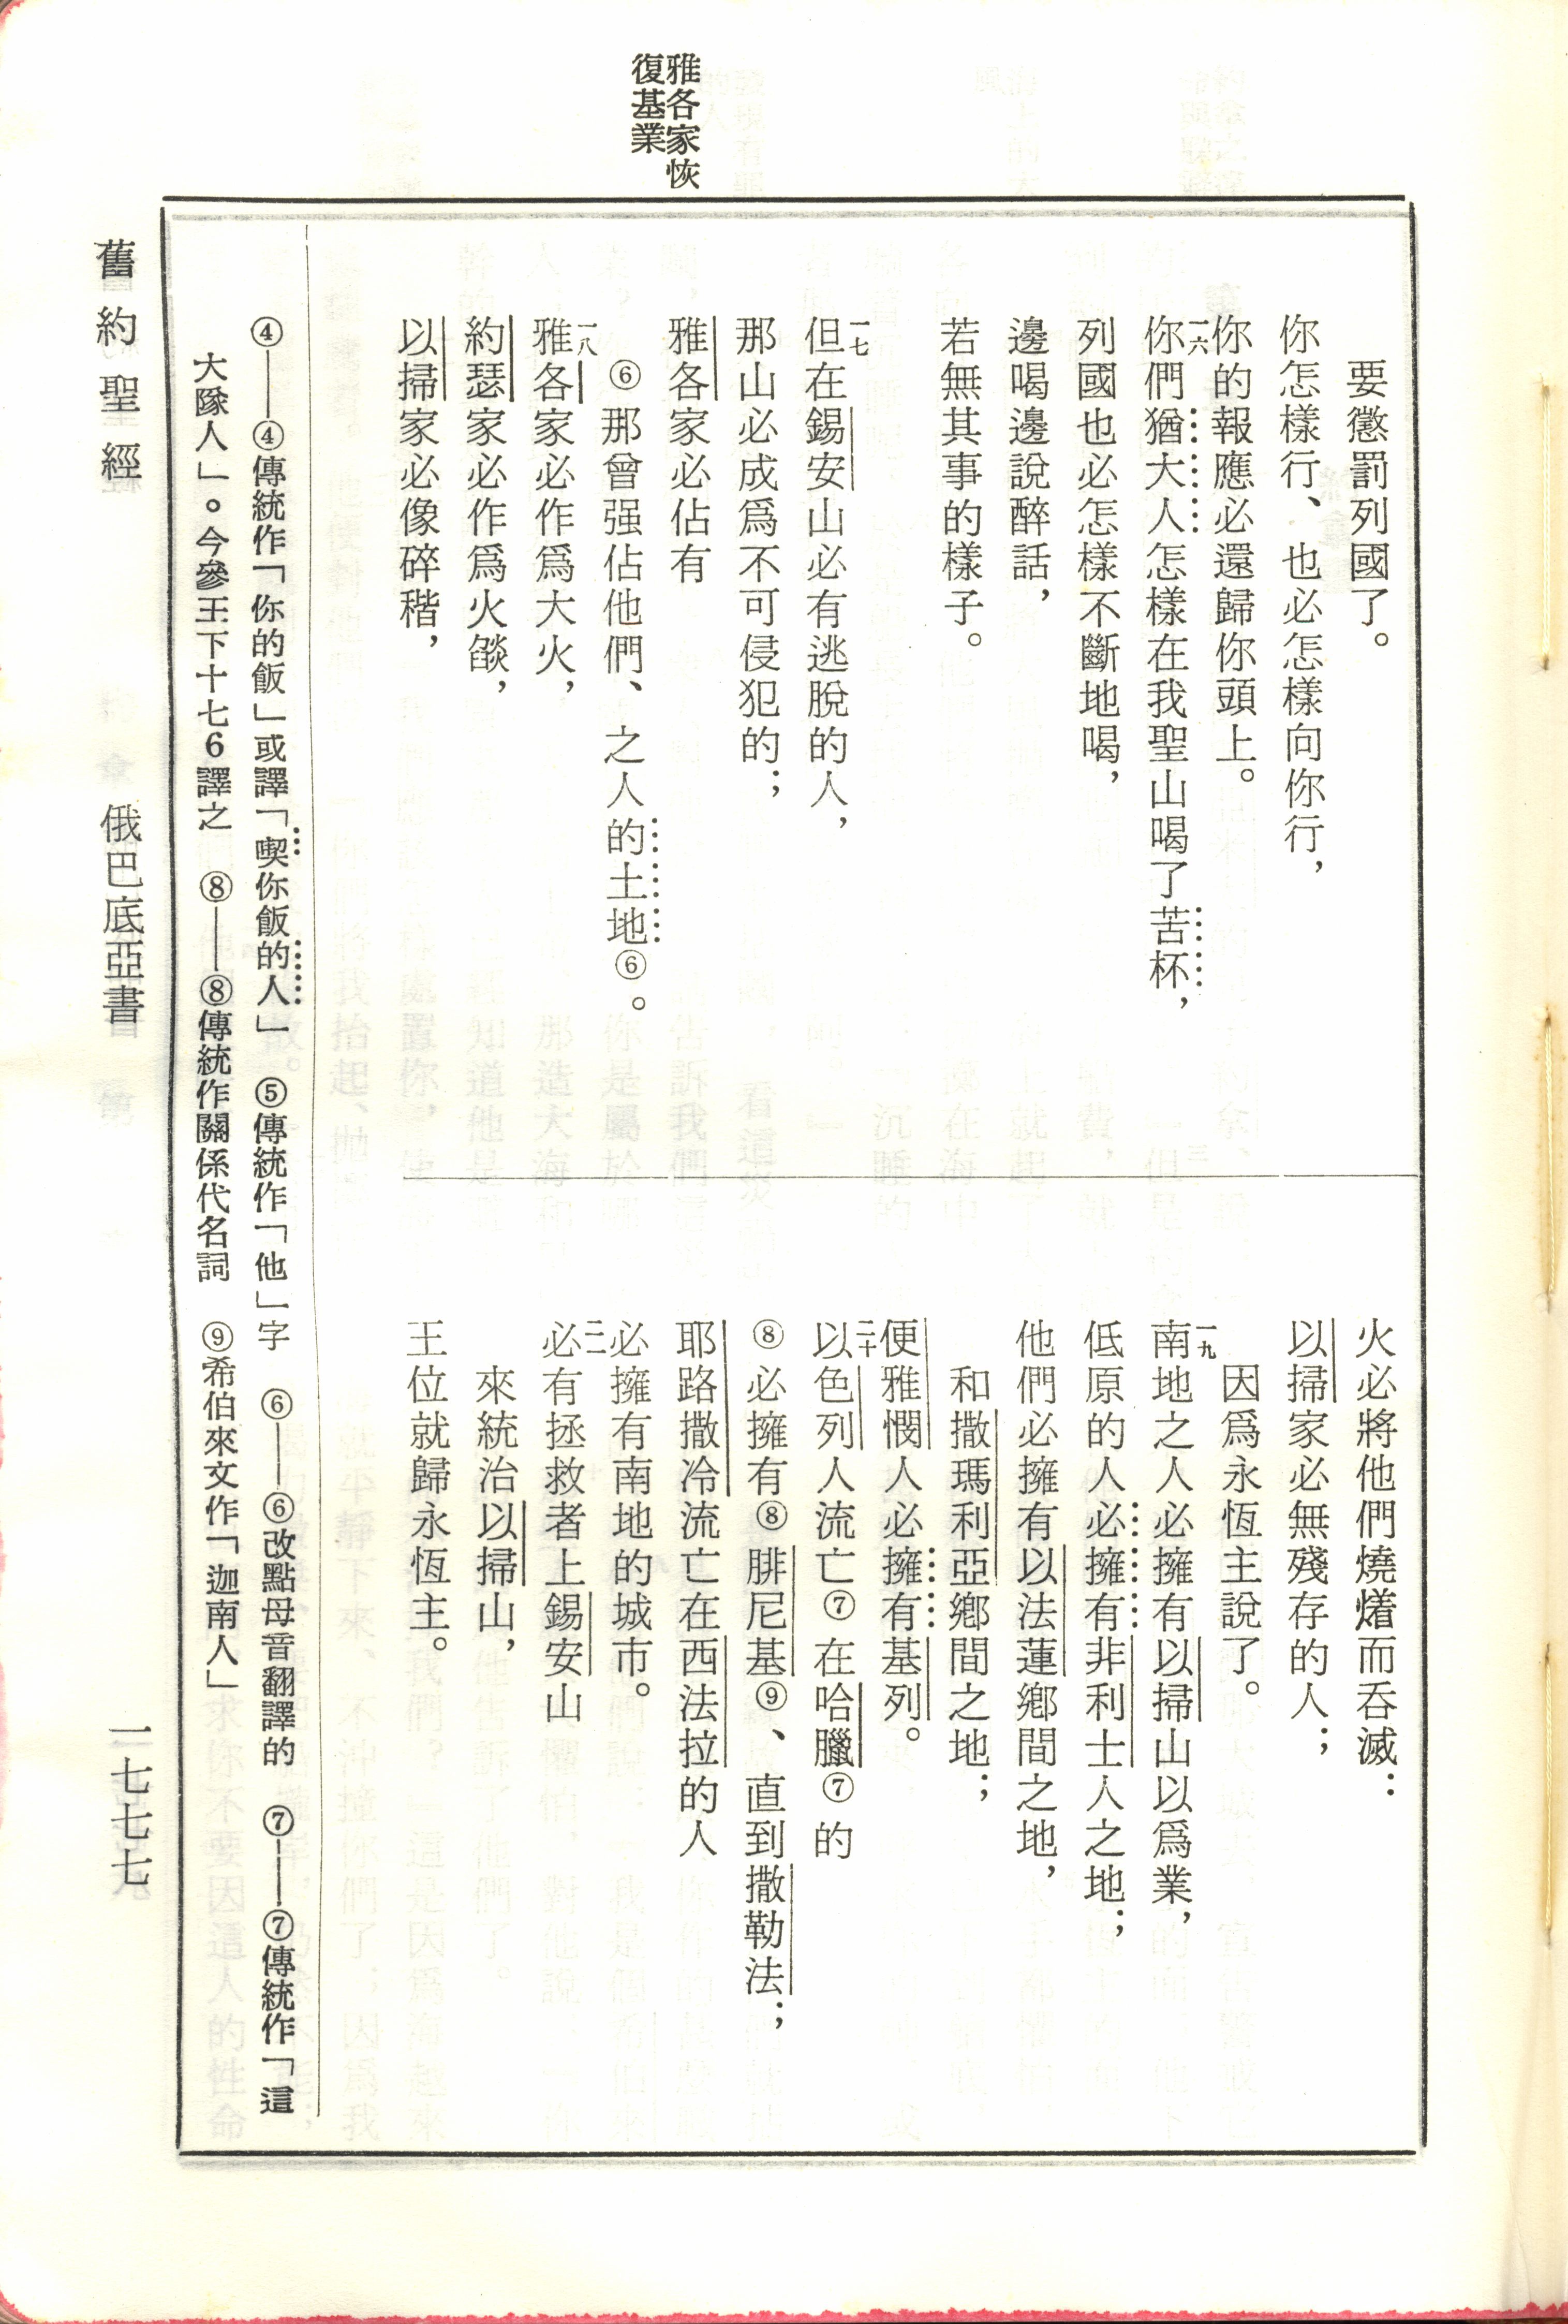 雅各家恢
復基業
要懲罰列國了。
你怎樣行、也必怎樣向你行，
你的報應必還歸你頭上。
一六你們猶大人怎樣在我聖山喝了苦杯，
列國也必怎樣不斷地喝，
邊喝邊說醉話，
若無其事的樣子。
一七但在錫安山必有逃脫的人，
那山必成爲不可侵犯的；
雅各家必佔有
⑥那曾强佔他們、之人的土地⑥。
一八雅各家必作爲大火，
約瑟家必作爲火燄，
以掃家必像碎稭，
火必將他們燒㸌而吞滅：
以掃家必無殘存的人；
因爲永恆主說了。
一九南地之人必擁有以掃山以爲業，
低原的人必擁有非利士人之地；
他們必擁有以法蓮鄉間之地，
和撒瑪利亞鄉間之地；
便雅憫人必擁有基列。
二十以色列人流亡⑦在哈臘⑦的
⑧必擁有⑧腓尼基⑨、直到撒勒法；
耶路撒冷流亡在西法拉的人
必擁有南地的城市。
二一必有拯救者上錫安山
來統治以掃山，
王位就歸永恆主。
④——④傳統作「你的飯」或譯「喫你飯的人」 ⑤傳統作「他」字 ⑥——⑥改點母音翻譯的 ⑦——⑦傳統作「這
大隊人」。今參王下十七6譯之 ⑧——⑧傳統作關係代名詞 ⑨希伯來文作「迦南人」
舊約聖經 俄巴底亞書 一七七七